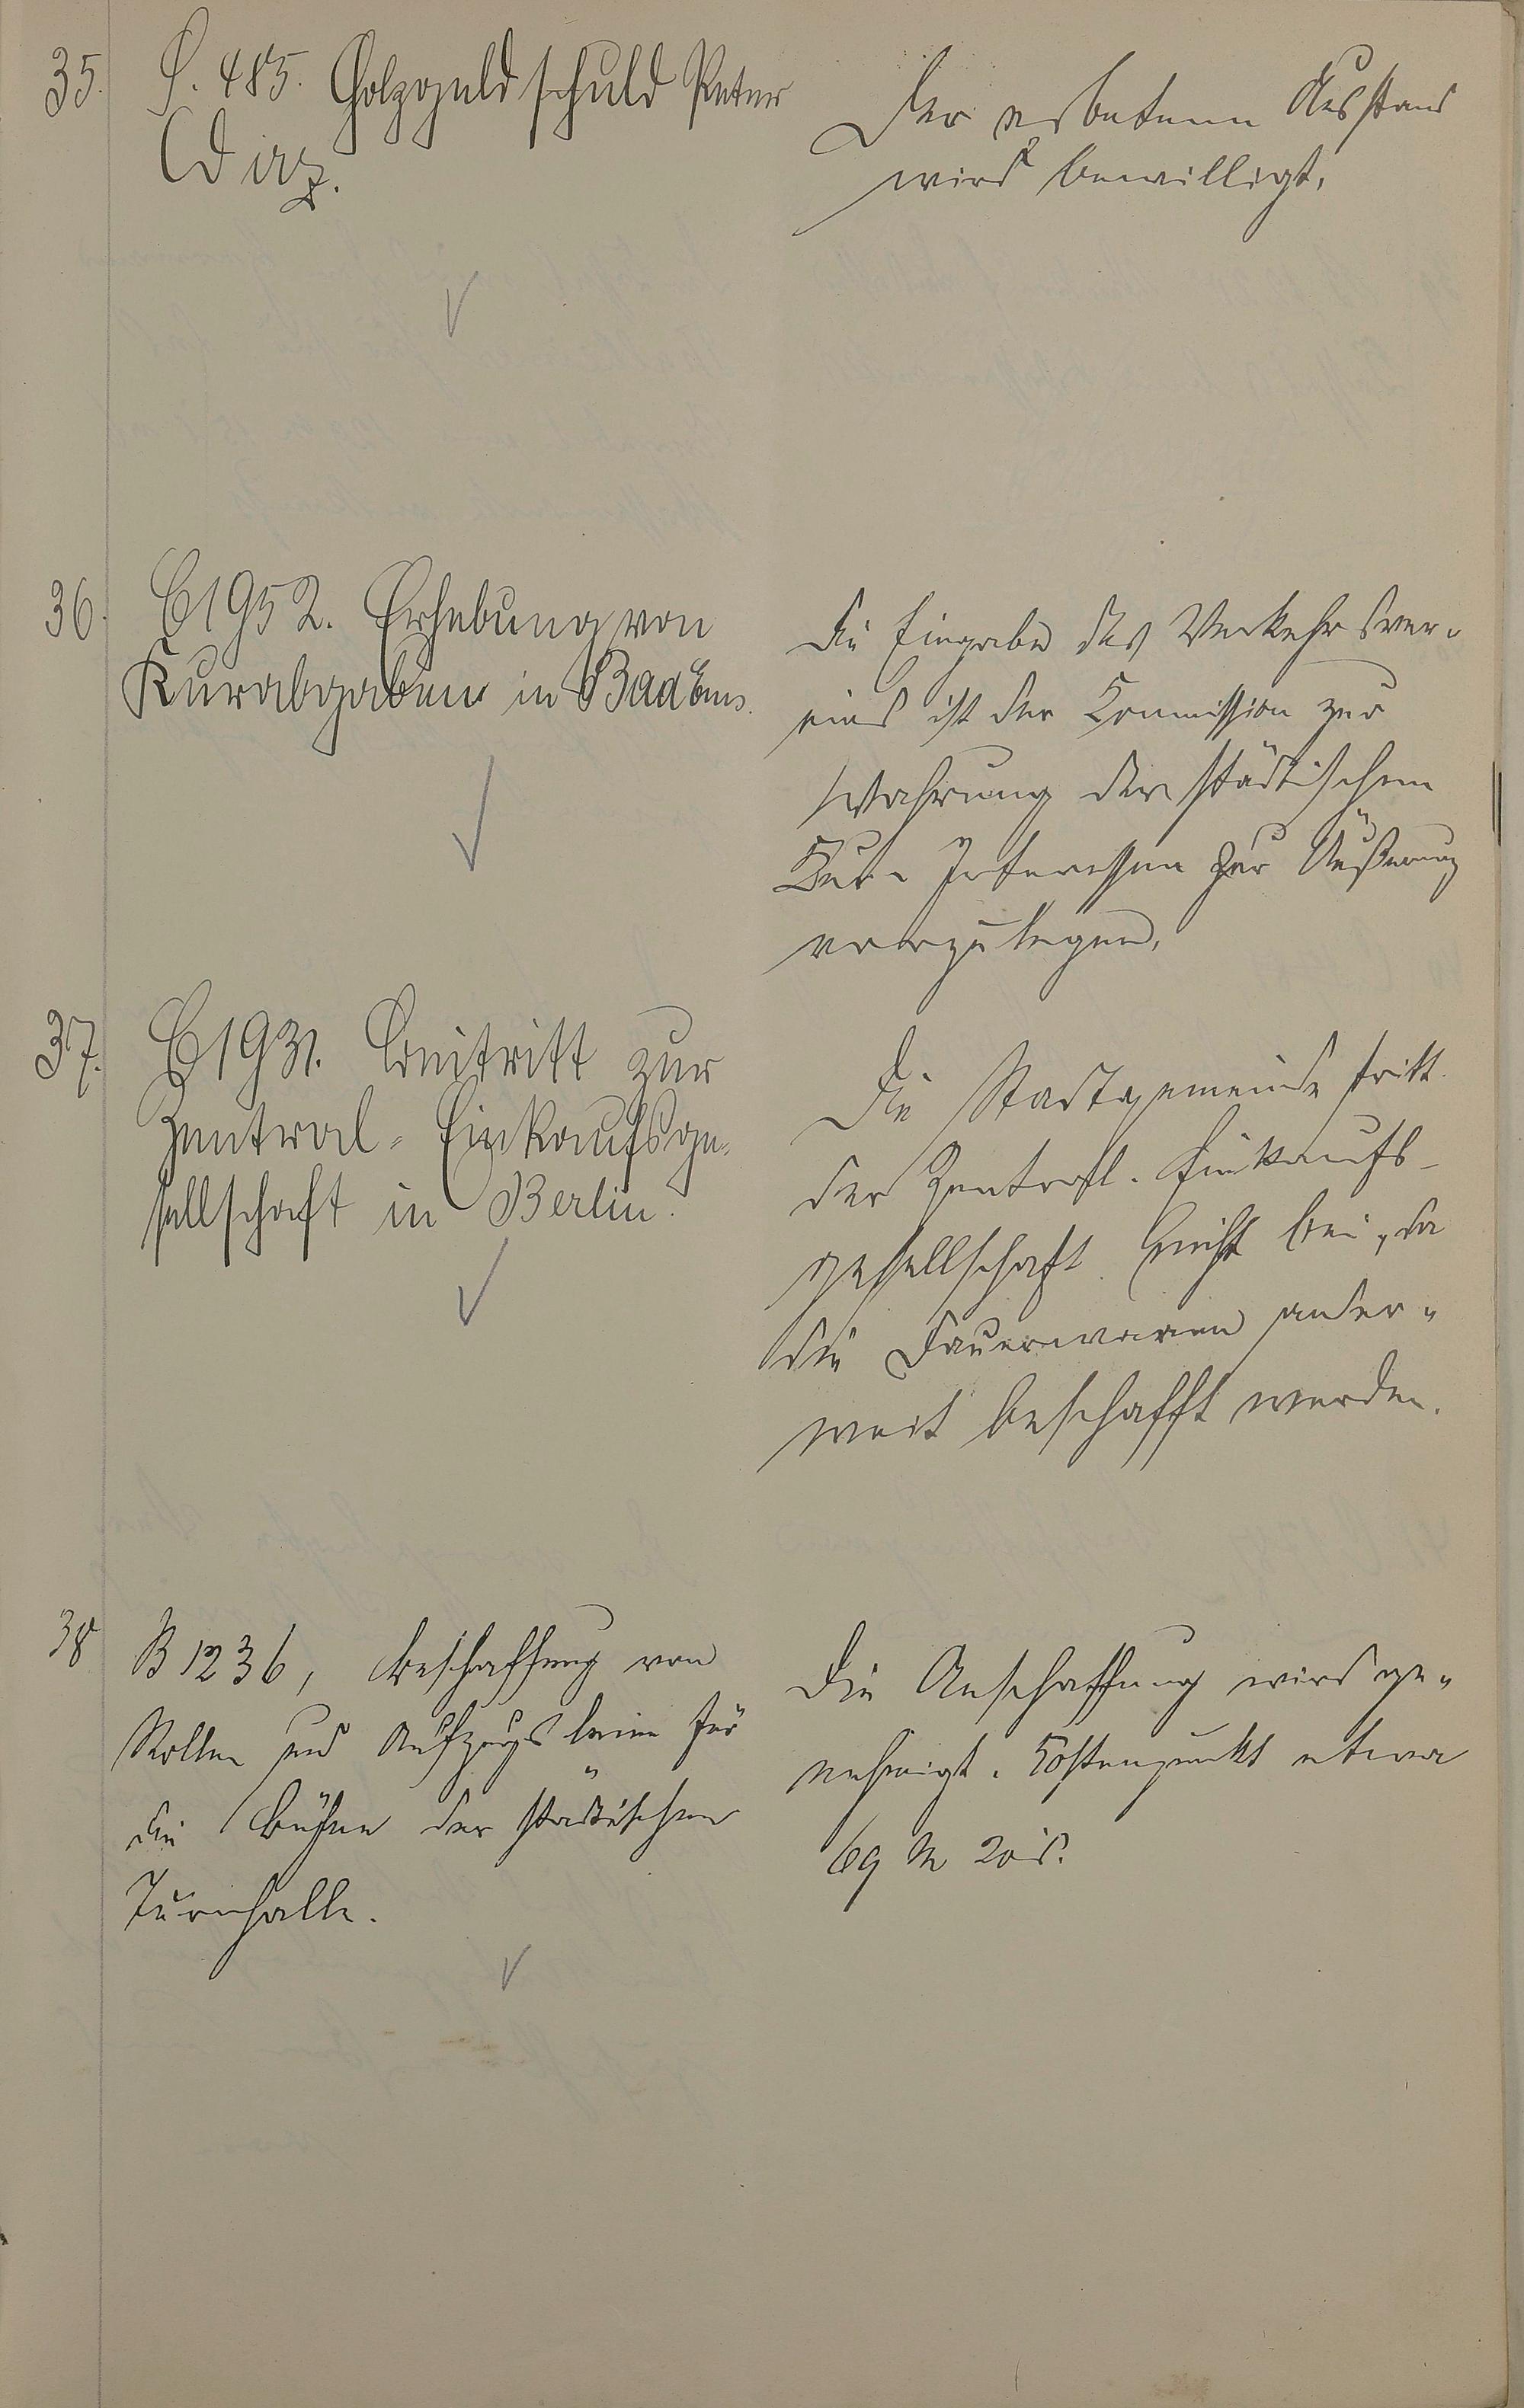 35. S. 485. Holzgeldschuld Peter
Wirz.
Der erbetene Ausstand
wird bewilligt.
36. C1952. Erhebung von
Kurabgaben in Bad Ems.
Die Eingabe des Verkehrsver-
eins ist der Commission zur
Wahrung der städtischen
Kur-Interessen zur Äußerung
vorzulegen.
37. C1931. Beitritt zur
Zentral-Einkaufsge-
sellschaft in Berlin.
Die Stadtgemeinde tritt
der Zentral-Einkaufs-
gesellschaft nicht bei, da
die Dauerwaren ander-
weit beschafft werden.
38 B1236, Beschaffung von
Rollen und Aufzugsleine für
die Bühne der städtischen
Turnhalle.
Die Anschaffung wird ge-
nehmigt. Kostenpunkt etwa
69 M 20